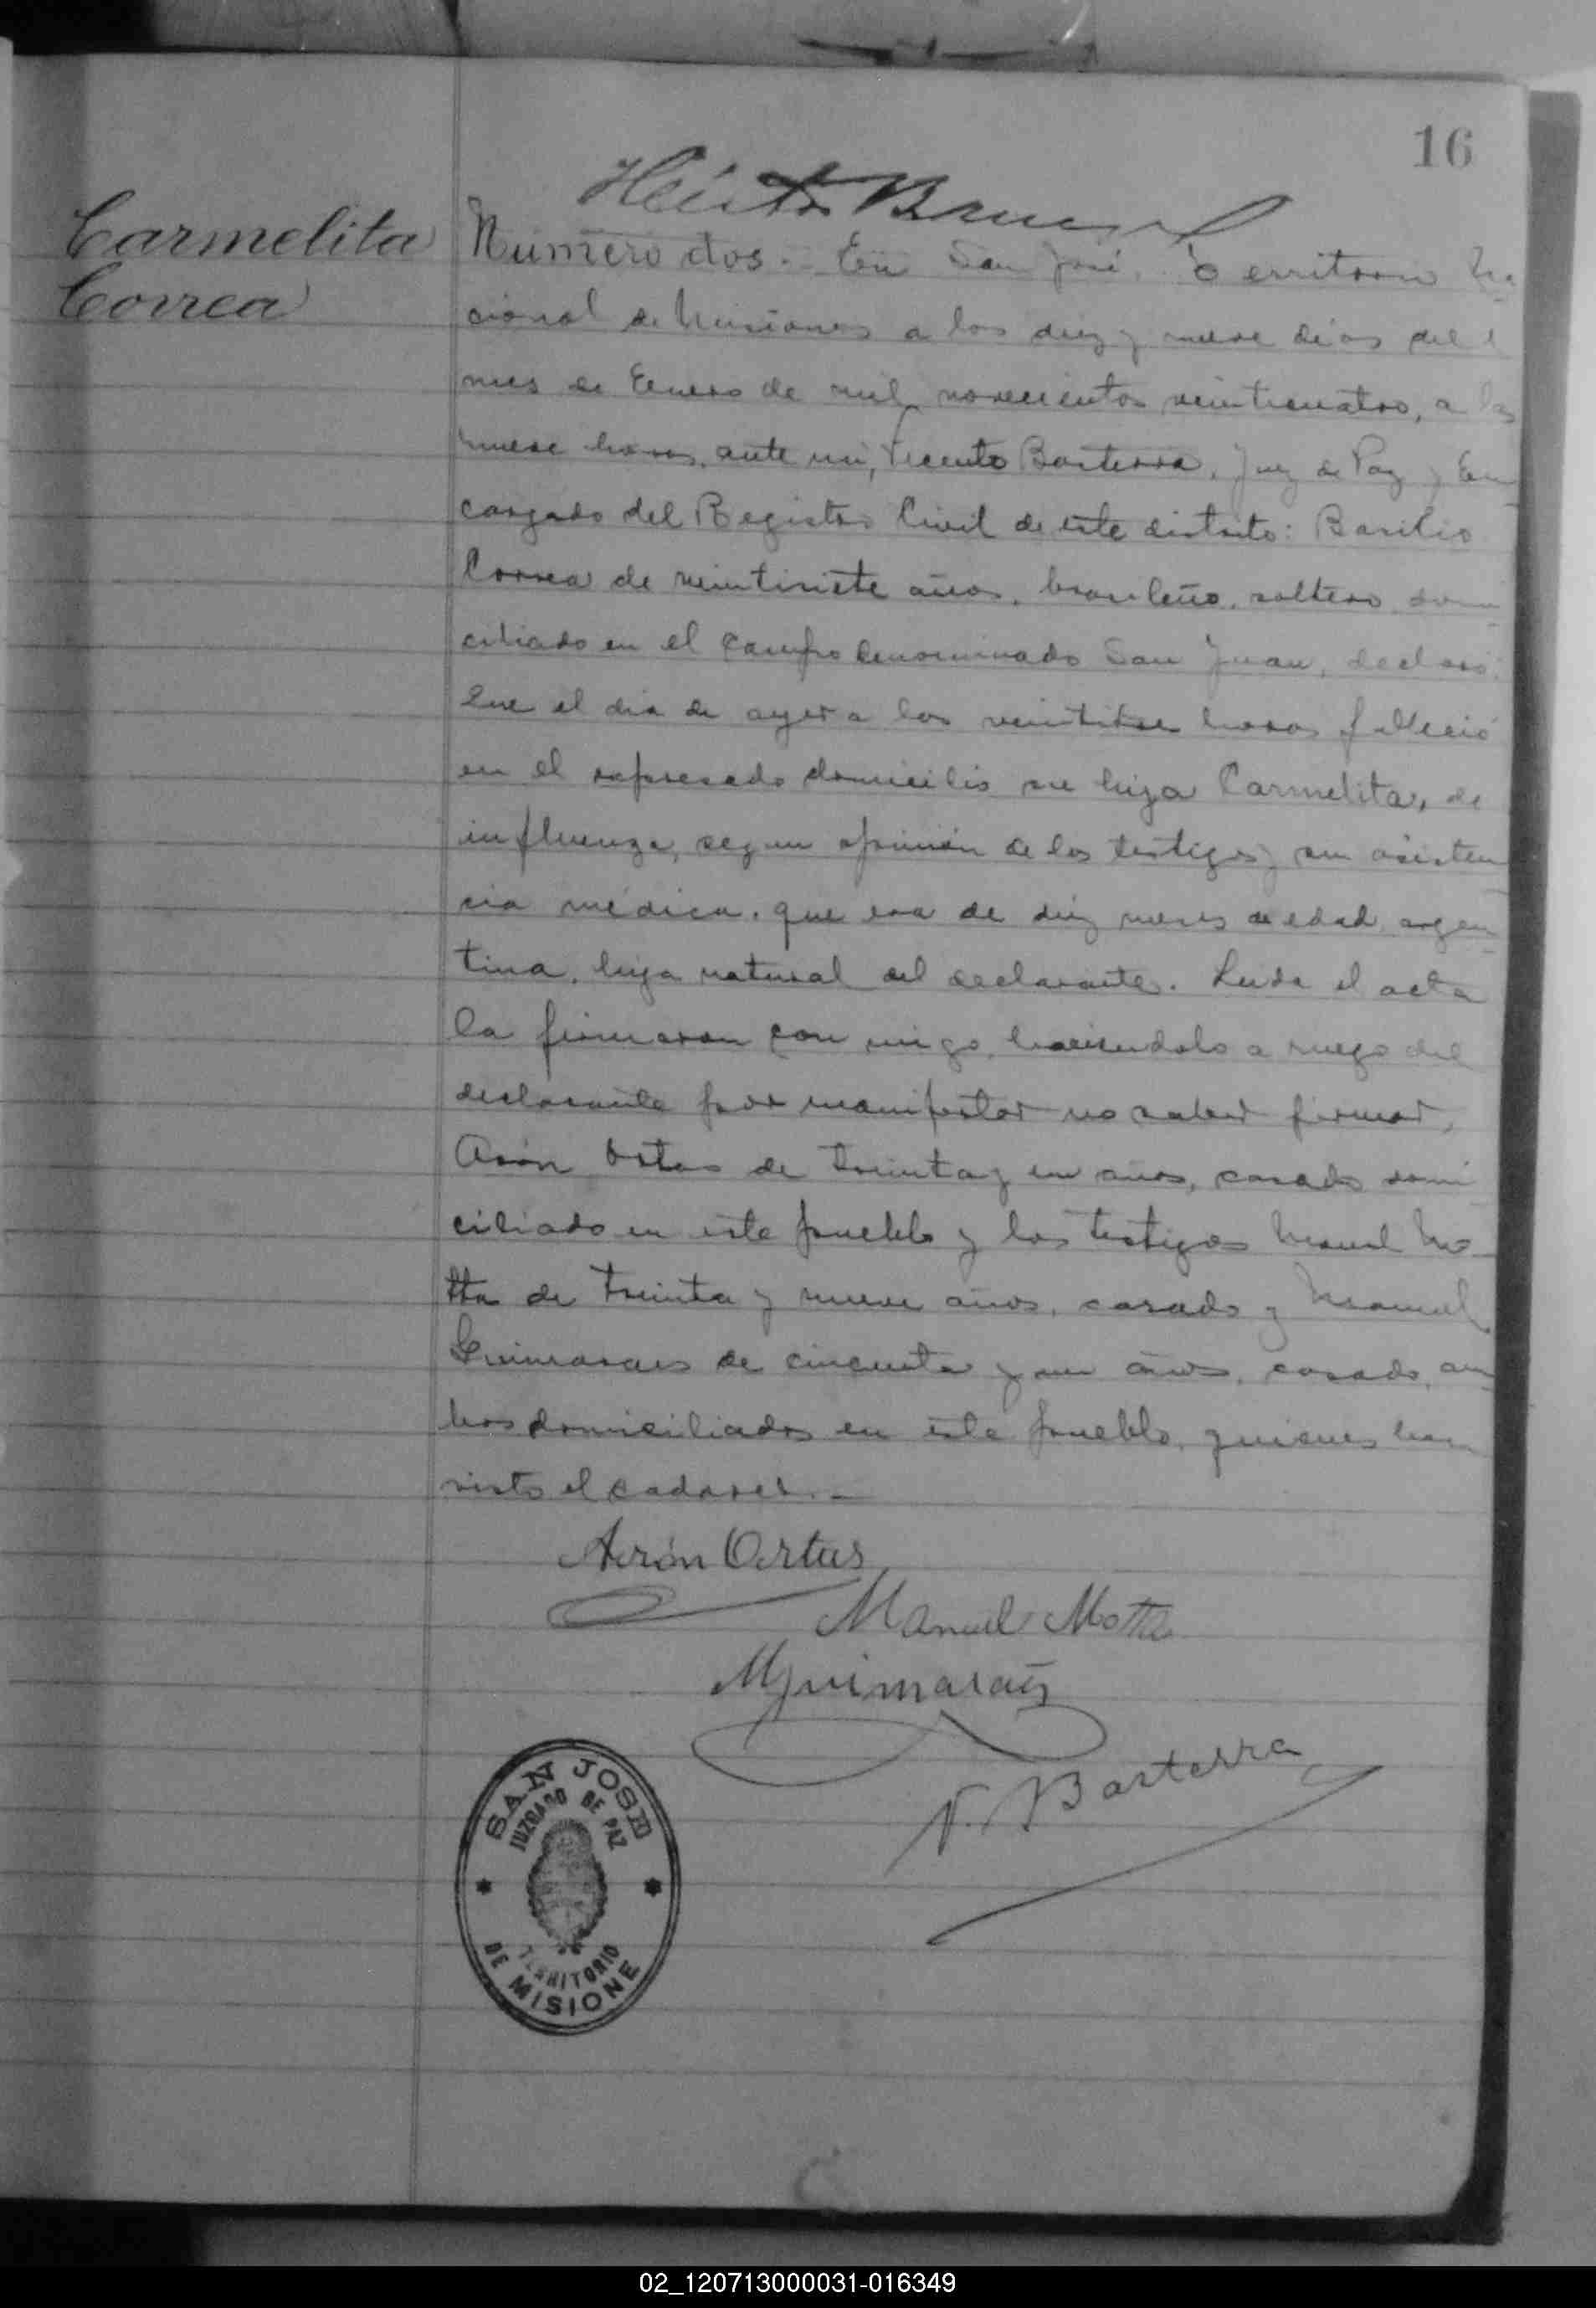 16
Carmelita
Correa
Número dos.- En San José, Territorio Na-
cional de Misiones a los diez y nueve dias del
mes de Enero de mil novecientos veinticuatro, a las
nueve horas, ante mi, Vicente Basterra, Juez de Paz y En-
cargado del Registro Civil de este distrito: Basilio
Correa de veintisiete años, brasileño, soltero, domi-
ciliado en el campo denominado San Juan, declaró:
Que el dia de ayer a las horas falleció
en el expresado domicilio su hija Carmelita, de
influenza, segun opinión de los testigos y sin asisten-
cia médica, que era de diez meses de edad, argen-
tina, hija natural del declarante. Leida el acta
la firmaron con migo, haciendolo a ruego del
declarante por manifestar no saber firmar,
de treinta y un años, casado, domi-
ciliado en este pueblo y los testigos Manuel Mo-
tta de treinta y nueve años, casado y Manuel
Guimaraes de cincuenta y un años, casado, am-
bos domiciliados en este pueblo, quienes han
visto el cadaver.-
Manuel Motta
MGuimarães
V. Basterra
SAN JOSE
JUZGADO DE PAZ
TERRITORIO
DE MISIONE
02_120713000031-016349